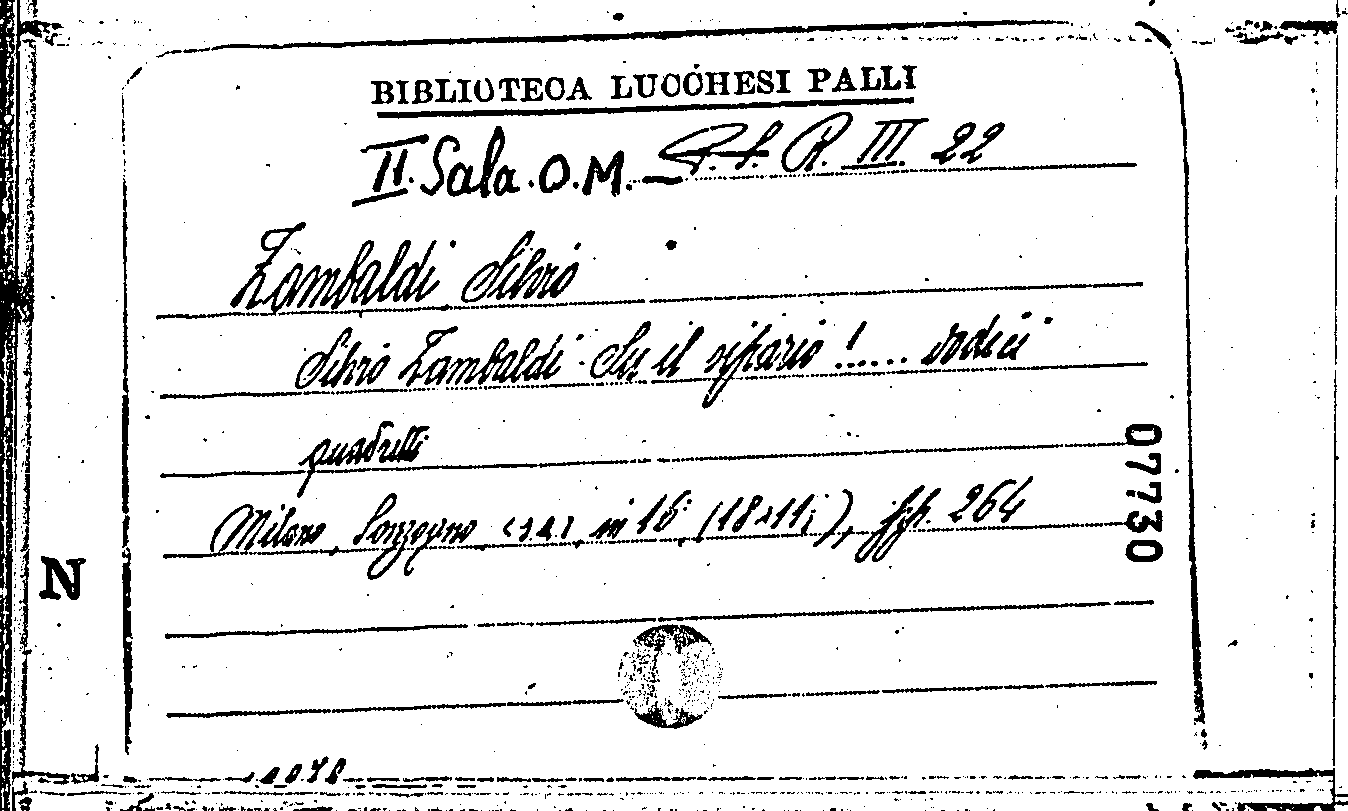 BIBLIOTECA LUCCHESI PALLI
II. Sala. O. M. R. III. 22
Zambaldi Silvio
Silvio Zambaldi. Su il sipario !..... dodici
quadretti
Milano, Sonzogno (s.a.), in 16° (18x11), pp. 264
07730
N